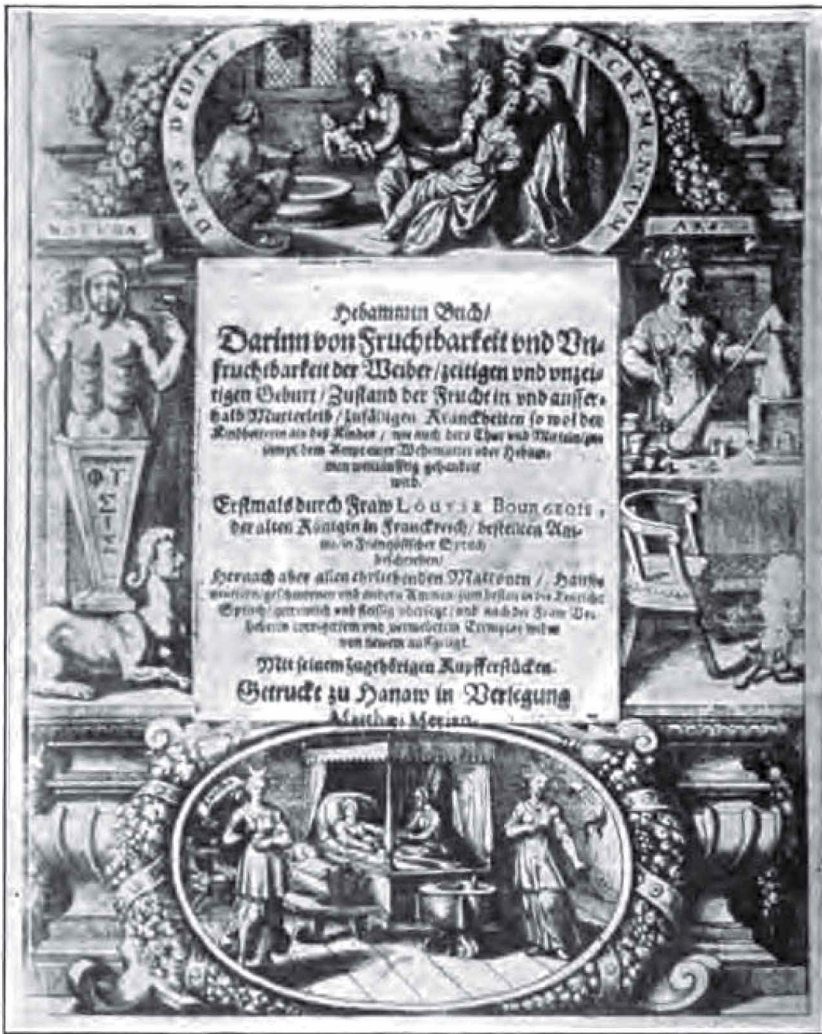 DEVS DEDIT
INCREMENTVM
NATVRA
ARS
Hebammen Buch/
Darinn von Fruchtbarkeit vnd Vn-
fruchtbarkeit der Weiber/zeitigen vnd vnzei-
tigen Geburt/Zustand der Frucht in vnd ausser-
halb Mutterleib/zufälligen Kranckheiten so wol der
Kindbetterin als deß Kindes/
sampt dem Ampt einer Wehemutter oder Hebam-
men gehandelt
wird.
Erstmals durch Fraw LOUYSE BOURGEOIS,
der alten Königin in Franckreich/bestellten Am-
me/in Frantzösischer Sprach
beschrieben/
Hernach aber allen ehrliebenden Matronen/
geschwornen vnd andern Ammen zum besten in die Teutsche
Sprach/getrewlich vnd fleissig vbersetzt/vnd nach der Fraw
Exemplar
von newem auffgelegt.
Mit seinem zugehörigen Kupfferstücken.
Getruckt zu Hanaw in Verlegung
Matthaei Merian.
ΦΥ
Σ
Ι
Σ